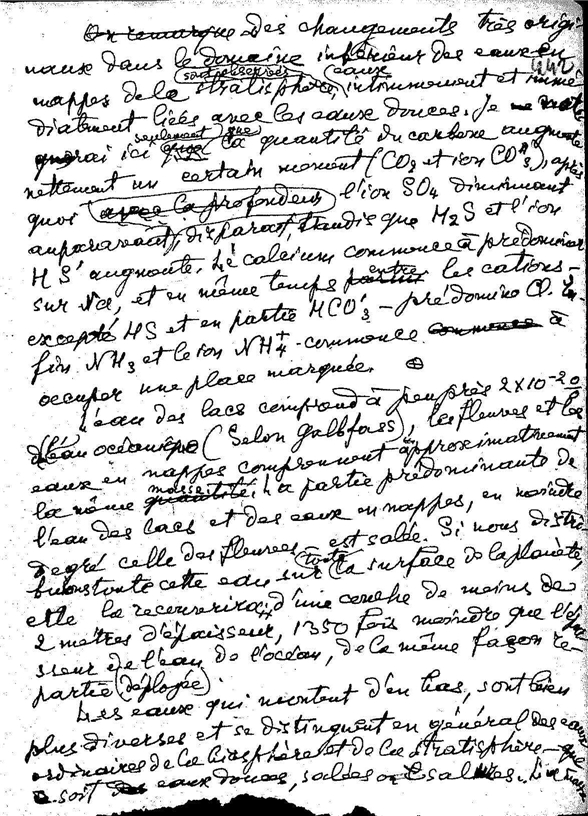 On remarque des changements très origi-
naux dans le domaine inférieur des eaux en
sont observées eaux 440
nappes de la stratisphère, intimmement et immé
diatement liées avec les eaux douces. Je
seulement que
rai ici que la quantité du carbone augmente
nettement un certain moment (CO2 et ion CO"3), après
quoi avec la profondeur l'ion SO4 diminuant
auparavant, disparait, tandis que H2S et l'ion
HS' augmente. Le calcium commence à prédominer
entre
sur Na, et en même temps parmi les cations -
excepté HS et en partie HCO'3 - prédomine Cl. En
fin NH3 et le ion NH4+ commence commence à
occuper une place marquée.
L'eau des lacs comprend à peu près 2X10-20
de l'eau océanique (Selon Galbfass), les fleuves et les
eaux en nappes comprennent approximativement
masse
la même quantité. La partie prédominante de
l'eau des lacs et des eaux en nappes, en moindre
degré celle des fleuves est salée. Si nous distri
toute
buons toute cette eau sur la surface de la planète,
elle la recouvrira d'une couche de moins de
2 mètres d'épaisseur, 1350 fois moindre que l'épa
sseur de l'eau de l'océan, de la même façon ré-
partie (déployée)
Les eaux qui montent d'en bas, sont bien
plus diverses et se distinguent en général des eaux
ordinaires de la biosphère et de la stratisphère - que
ce soit des eaux douces, salées ou salines.